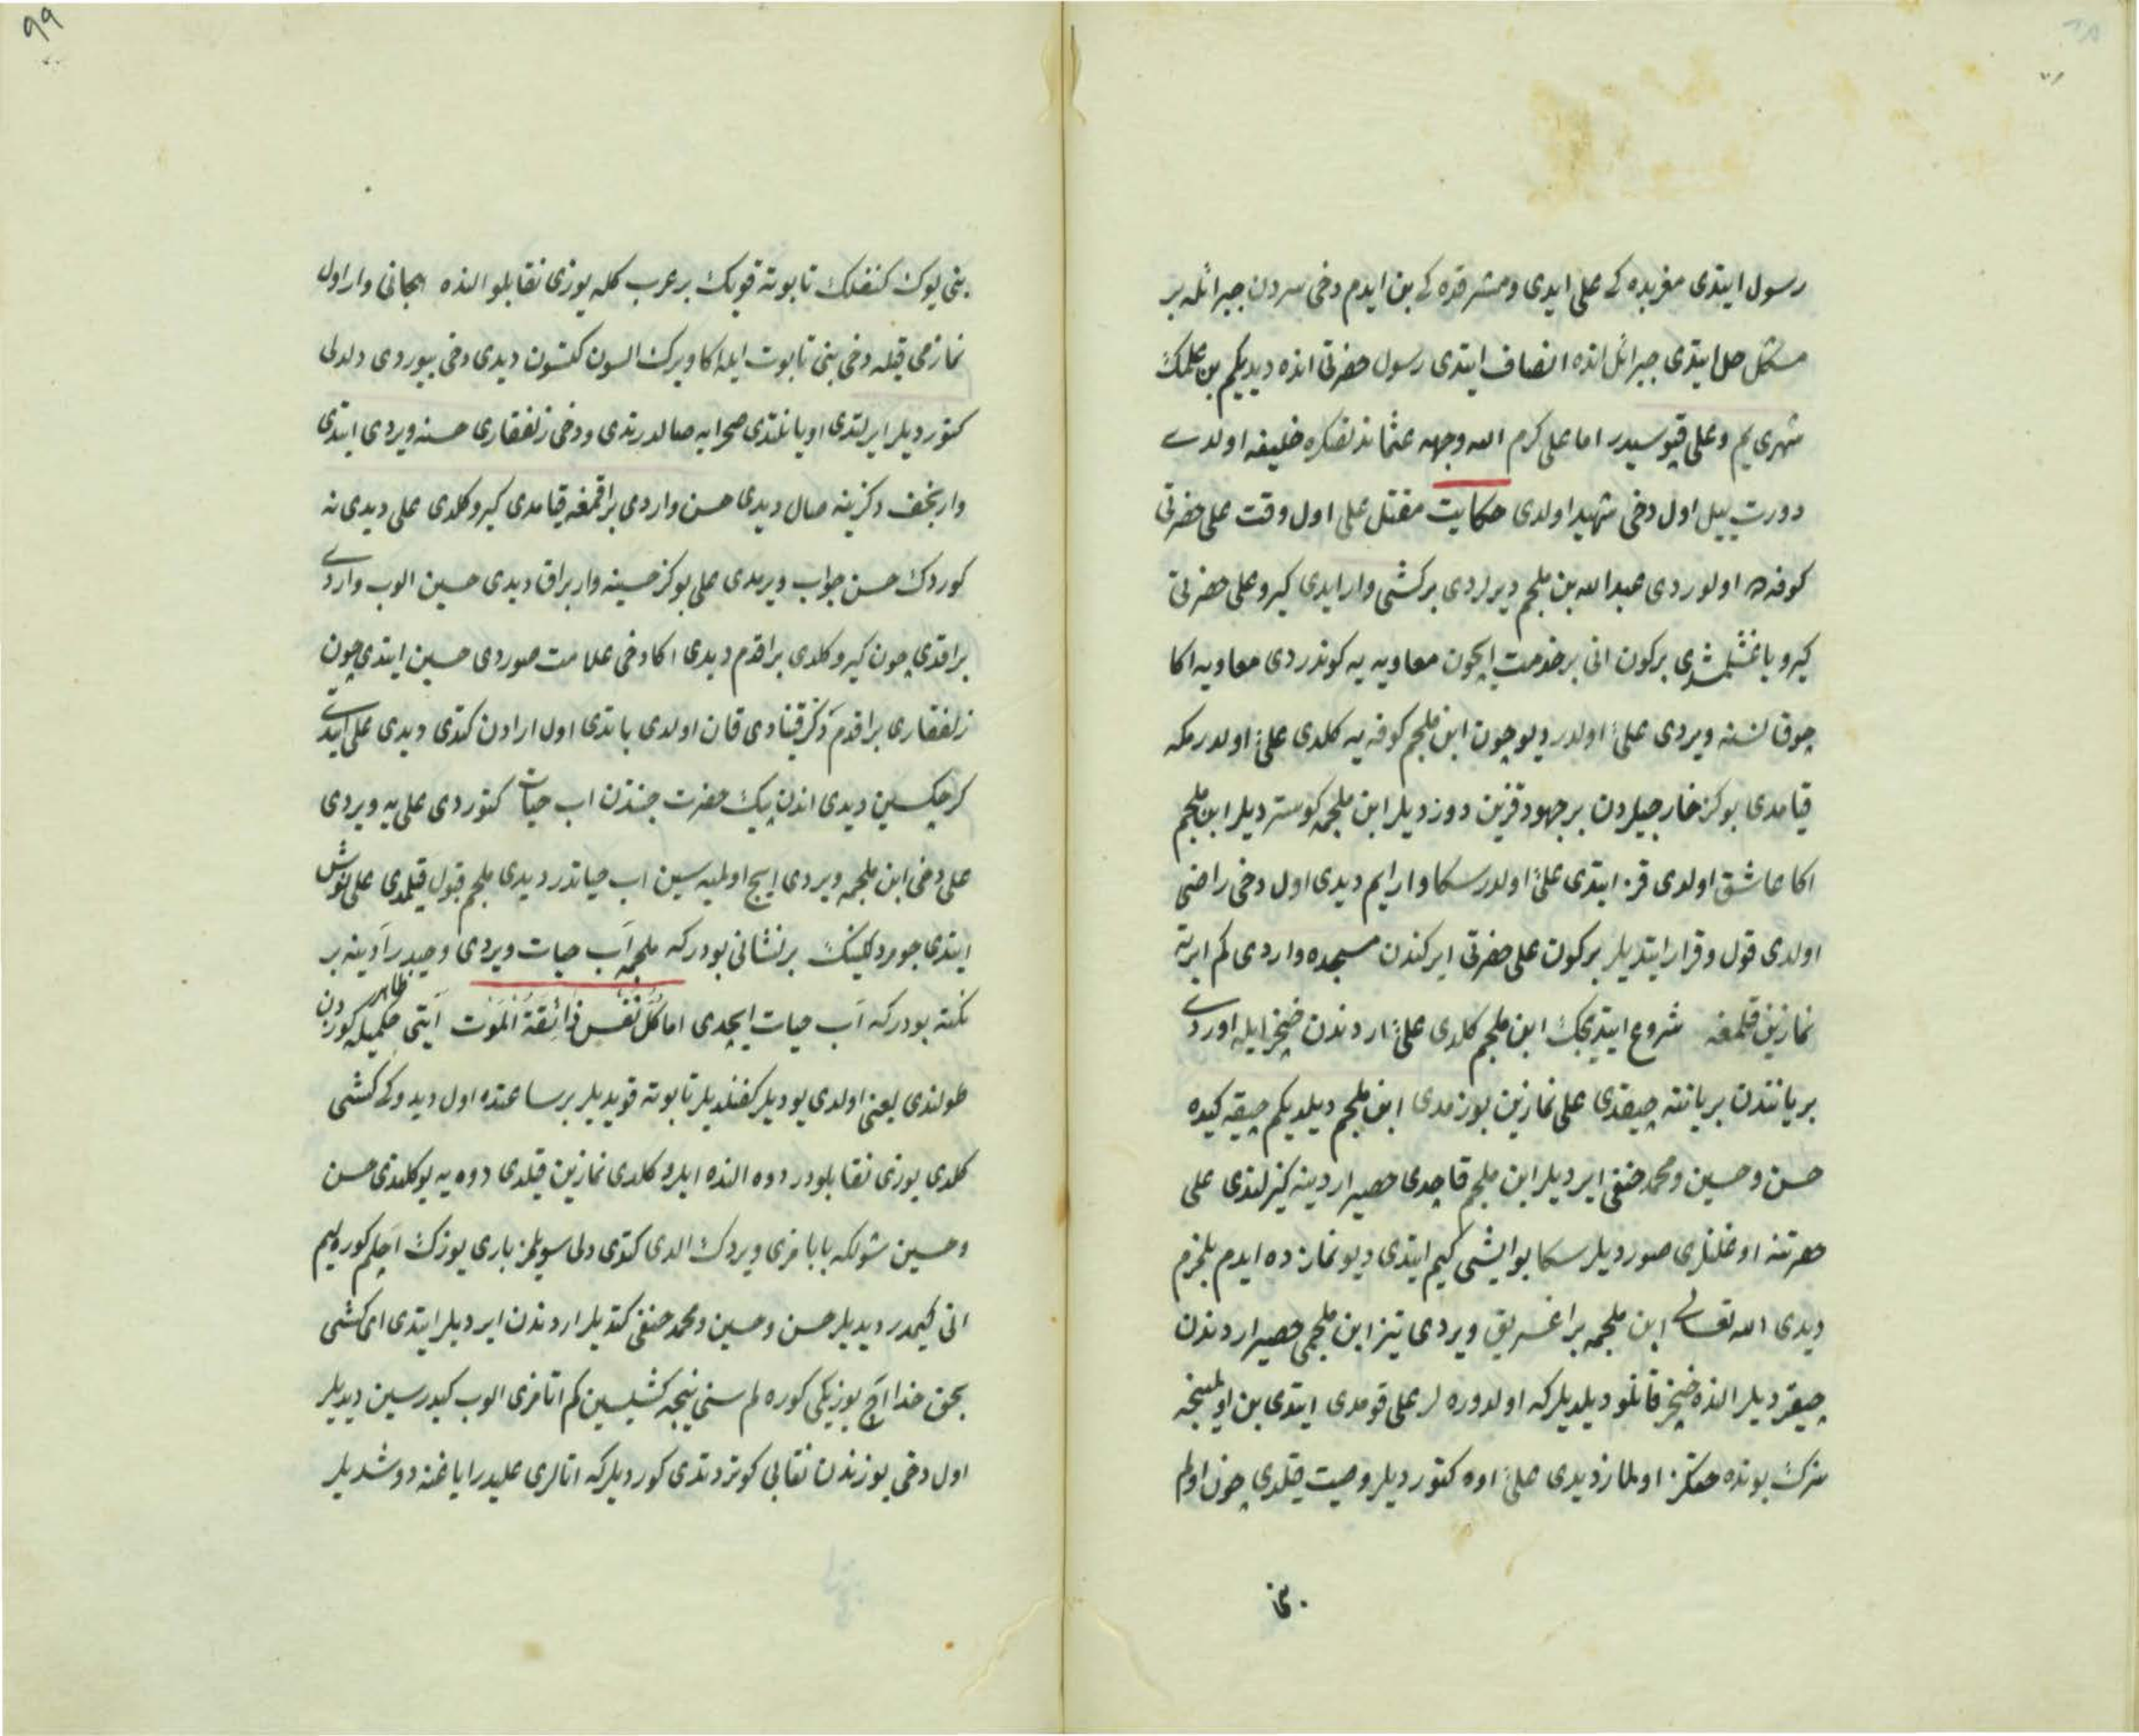 رسول ایتدی مغربده کی علی ایدی ومشرقده کی بن ایدم دخی سردن جبرائله بر
مشکل حل ایتدی جبرائل انده انصاف ایتدی رسول حضرتی انده دیدیکم بن علمک
شهری یم وعلی قپوسیدر اما علی کرم الله وجهه عثماندنصکره خلیفه اولدی
دورت ییل اول دخی شهید اولدی حکایت مقتل علی اول وقت علی حضرتی
کوفه ده اولوردی عبدالله بن ملجم دیرلردی برکشی وار ایدی کیرو علی حضرتی
کیرو باغشلمشدی برکون انی برخدمت ایچون معاویه یه کوندردی معاویه اکا
چوق نسنه ویردی علیُ اولدر دیو چون ابن ملجم کوفه یه کلدی علیُ اولدرمکه
قیامدی بوکز خارجیلردن برجهود قزین دوزدیلر ابن ملجمه کوستردیلر ابن ملجم
اکا عاشق اولدی قز ایتدی علیُ اولدر سکا وارایم دیدی اول دخی راضی
اولدی قول وقرار ایتدیلر برکون علی حضرتی ایرکندن مسجده واردی کم ایرته
نمازین قلمغه شروع ایتدیجک ابن ملجم کلدی علیُ اردندن خنجر ایله اوردی
بریانندن بریاننه چیقدی علی نمازین بوزمدی ابن ملجم دیلدیکم چیقه کیده
حسن وحسین ومحمد حنفی ایردیلر ابن ملجم قاچدی حصیر اردینه کیزلندی علی
حضرتنه اوغلنلری صوردیلر سکا بو ایشی کیم ایتدی دیو نمازده ایدم بلمزم
دیدی الله تعالی ابن ملجمه براغسریق ویردی تیز ابن ملجمی حصیر اردندن
چیقردیلر النده خنجر قانلو دیلدیلرکه اولدوره لر علی قومدی ایتدی بن اولمینجه
سزک بونده حقکز اولماز دیدی علیُ اوه کتوردیلر وصیت قلدی چون اولم
بنی
بنی یوک کفنلک تابوته قویک برعرب کله یوزی نقابلو النده هجانی وار اول
نمازمی قیله دخی بنی تابوت ایله اکا ویرک السون کتسون دیدی دخی بیوردی دلدلی
کتوردیلر ایرلتدی اویانلتدی صحرایه صالدرتدی ودخی زلفقاری حسنه ویردی ایتدی
وار نجف دکزینه صال دیدی حسن واردی براقمغه قیامدی کیرو کلدی علی دیدی نه
کوردک حسن جواب ویرمدی علی بوکز حسینه وار براق دیدی حسین الوب واردی
براقدی چون کیرو کلدی براقدم دیدی اکا دخی علامت صوردی حسین ایتدی چون
زلفقاری براقدم دکز قینادی قان اولدی باتدی اول ارادن کتدی دیدی علی ایتدی
کرچکسین دیدی اندن پیک حضرت جنتدن اب حیات کتوردی علی یه ویردی
علی دخی ابن ملجمه ویردی ایچ اولمیه سین اب حیاتدر دیدی ملجم قبول قیلمدی علی نوش
ایتدی جومردلیکنک برنشانی بودرکه ملجمه آب حیات ویردی وحیدرآدینه بر
نکته بودرکه آب حیات ایچدی اما کُل نَفْس ذَائِقَةُ الْمَوْت آیتی حکمیله کوزدن
ظاهر
طولندی یعنی اولدی یودیلر کفنلدیلر تابوته قویدیلر برساعتده اول دیدوکی کشی
کلدی یوزی نقابلودر دوه النده ایلرو کلدی نمازین قیلدی دوه یه یوکلندی حسن
وحسین شولکه بابامزی ویردک الدی کتدی دلی سویلمز باری یوزک آچلم کوره لیم
انی کیمدر دیدیلر حسن وحسین ومحمد حنفی کتدیلر اردندن ایردیلر ایتدی ای کشی
بحق خدا آچ یوزیکی کوره لم سنی نیجه کشیسین کم اتامزی الوب کیدرسین دیدیلر
اول دخی یوزندن نقابی کوتردتدی کوردیلرکه اتالری علیدر ایاغنه دوشدیلر
۹۹